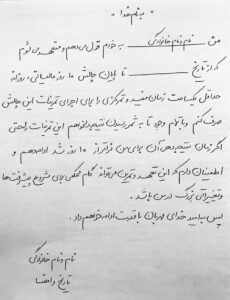 " به نام خدا "
من نام و نام خانوادگی به خودم قول می‌دهم و متعهد می شوم
که از تاریخ تا پایان چالش ۱۰ روز روزانه
حداقل یکساعت زمان مفید و تمرکزی را برای اجرای تمرینات این چالش
صرف کنم و با تمام وجود تا به ثمر رسیدن نتیجه بخواهم این تمرینات راحتی
اگر زمان نتیجه دهی آن برای من فراتر از ۱۰ روز شد ادامه دهم و
اطمینان دارم که این تعهد و تمرین می‌تواند گام محکمی برای شروع پیشرفت‌ها
و تغییراتی بزرگ در من باشد.
پس به امید خدای مهربان با قدرت ادامه خواهم داد.
نام و نام خانوادگی
تاریخ و امضا